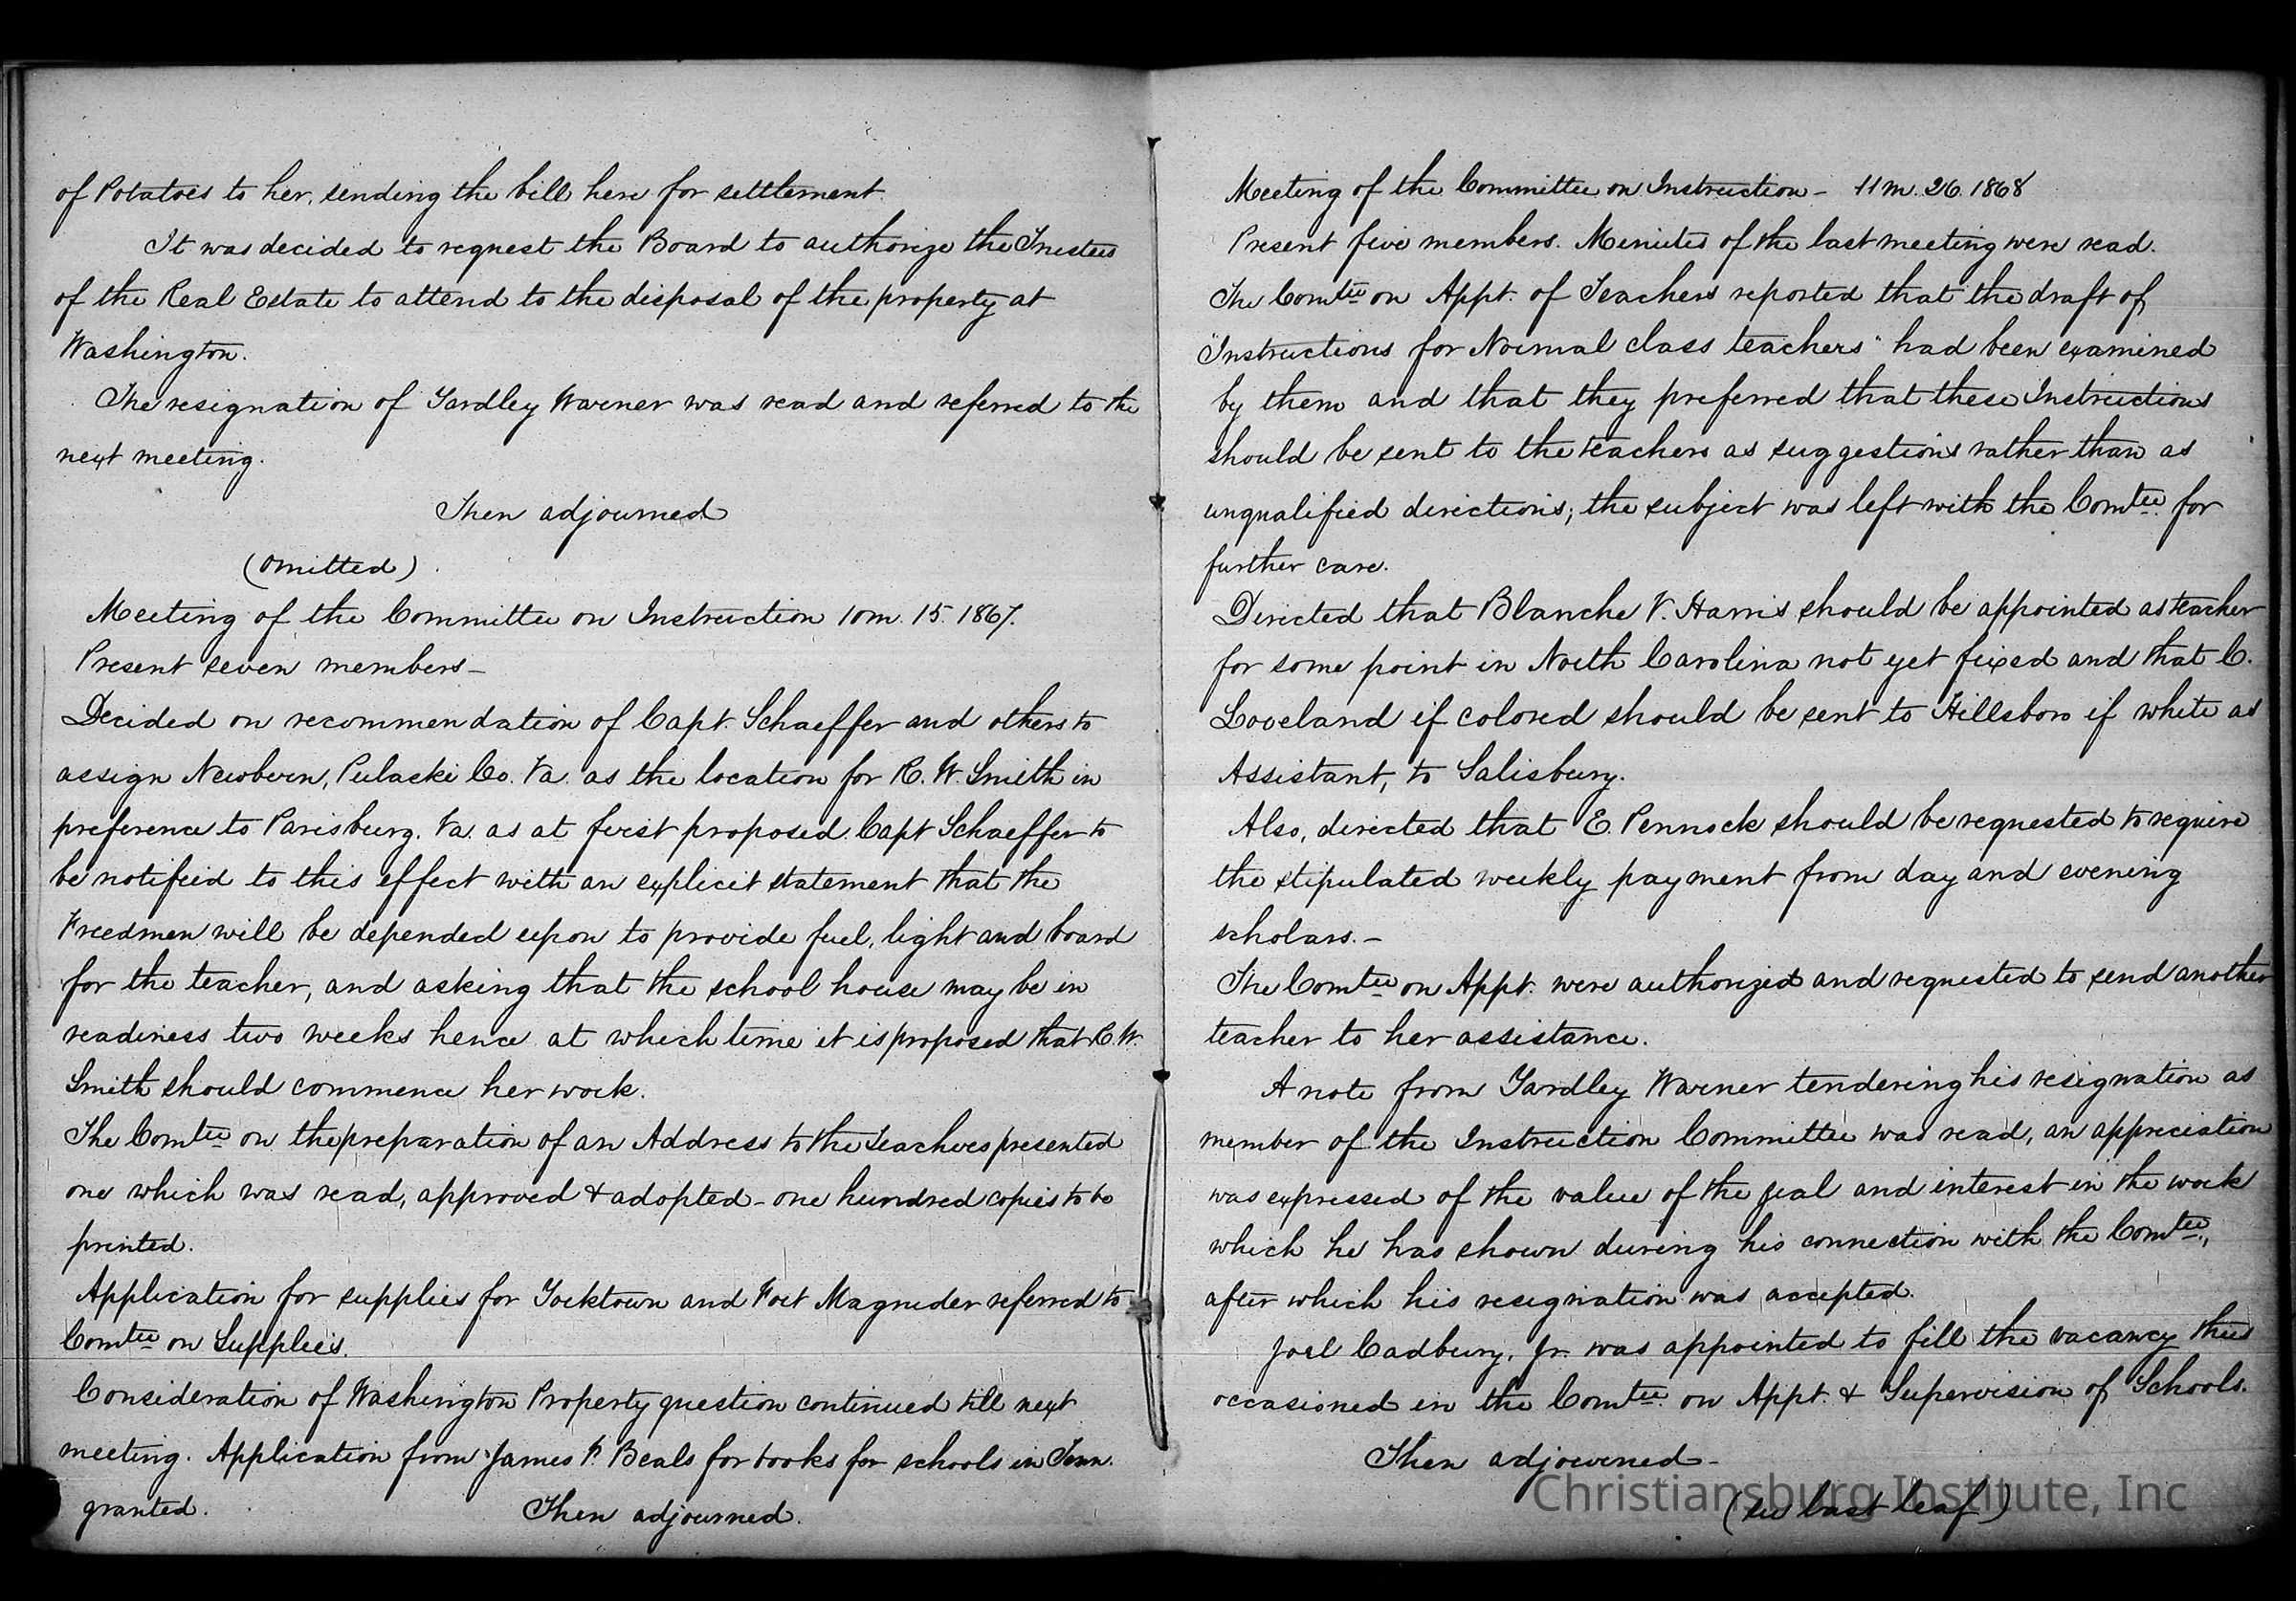 of Potatoes to her, sending the bill here for settlement.
It was decided to request the Board to authorize the Trustees
of the Real Estate to attend to the disposal of the property at
Washington.
The resignation of Yardley Warner was read and referred to the
next meeting.
Then adjourned
(omitted)
Meeting of the Committee on Instruction 10m. 15. 1867.
Present seven members—
Decided on recommendation of Capt. Schaeffer and others to
assign Newbern, Pulaski Co. Va. as the location for R. W. Smith in
preference to Parisburg. Va. as at first proposed. Capt Schaeffer to
be notified to this effect with an explicit statement that the
Freedmen will be depended upon to provide fuel, light and board
for the teacher, and asking that the school house may be in
readiness two weeks hence at which time it is proposed that R. W.
Smith should commence her work.
The Comtee on the preparation of an Address to the Teachers presented
one which was read, approved & adopted - one hundred copies to be
printed.
Application for supplies for Yorktown and Fort Magruder referred to
Comtee on Supplies.
Consideration of Washington Property question continued till next
meeting. Application from James P. Beals for books for schools in Tenn.
granted. Then adjourned.
Meeting of the Committee on Instruction - 11m. 26. 1868
Present five members. Minutes of the last meeting were read.
The Comtee on Appt. of Teachers reported that the draft of
"Instructions for Normal class teachers" had been examined
by them and that they preferred that these Instructions
should be sent to the teachers as suggestions rather than as
unqualified directions; the subject was left with the Comtee. for
further care.
Directed that Blanche V. Harris should be appointed as teacher
for some point in North Carolina not yet fixed and that C.
Loveland if colored should be sent to Hillsboro if white as
Assistant, to Salisbury.
Also, directed that E. Pennock should be requested to require
the stipulated weekly payment from day and evening
scholars. -
The Comtee on Appt. were authorized and requested to send another
teacher to her assistance.
A note from Yardley Warner tendering his resignation as
member of the Instruction Committee was read, an appreciation
was expressed of the value of the zeal and interest in the work
which he has shown during his connection with the Comtee.,
after which his resignation was accepted.
Joel Cadbury, Jr. was appointed to fill the vacancy thus
occasioned in the Comtee. on Appt. & Supervision of Schools.
Then adjourned -
(see last leaf)
Christiansburg Institute, Inc